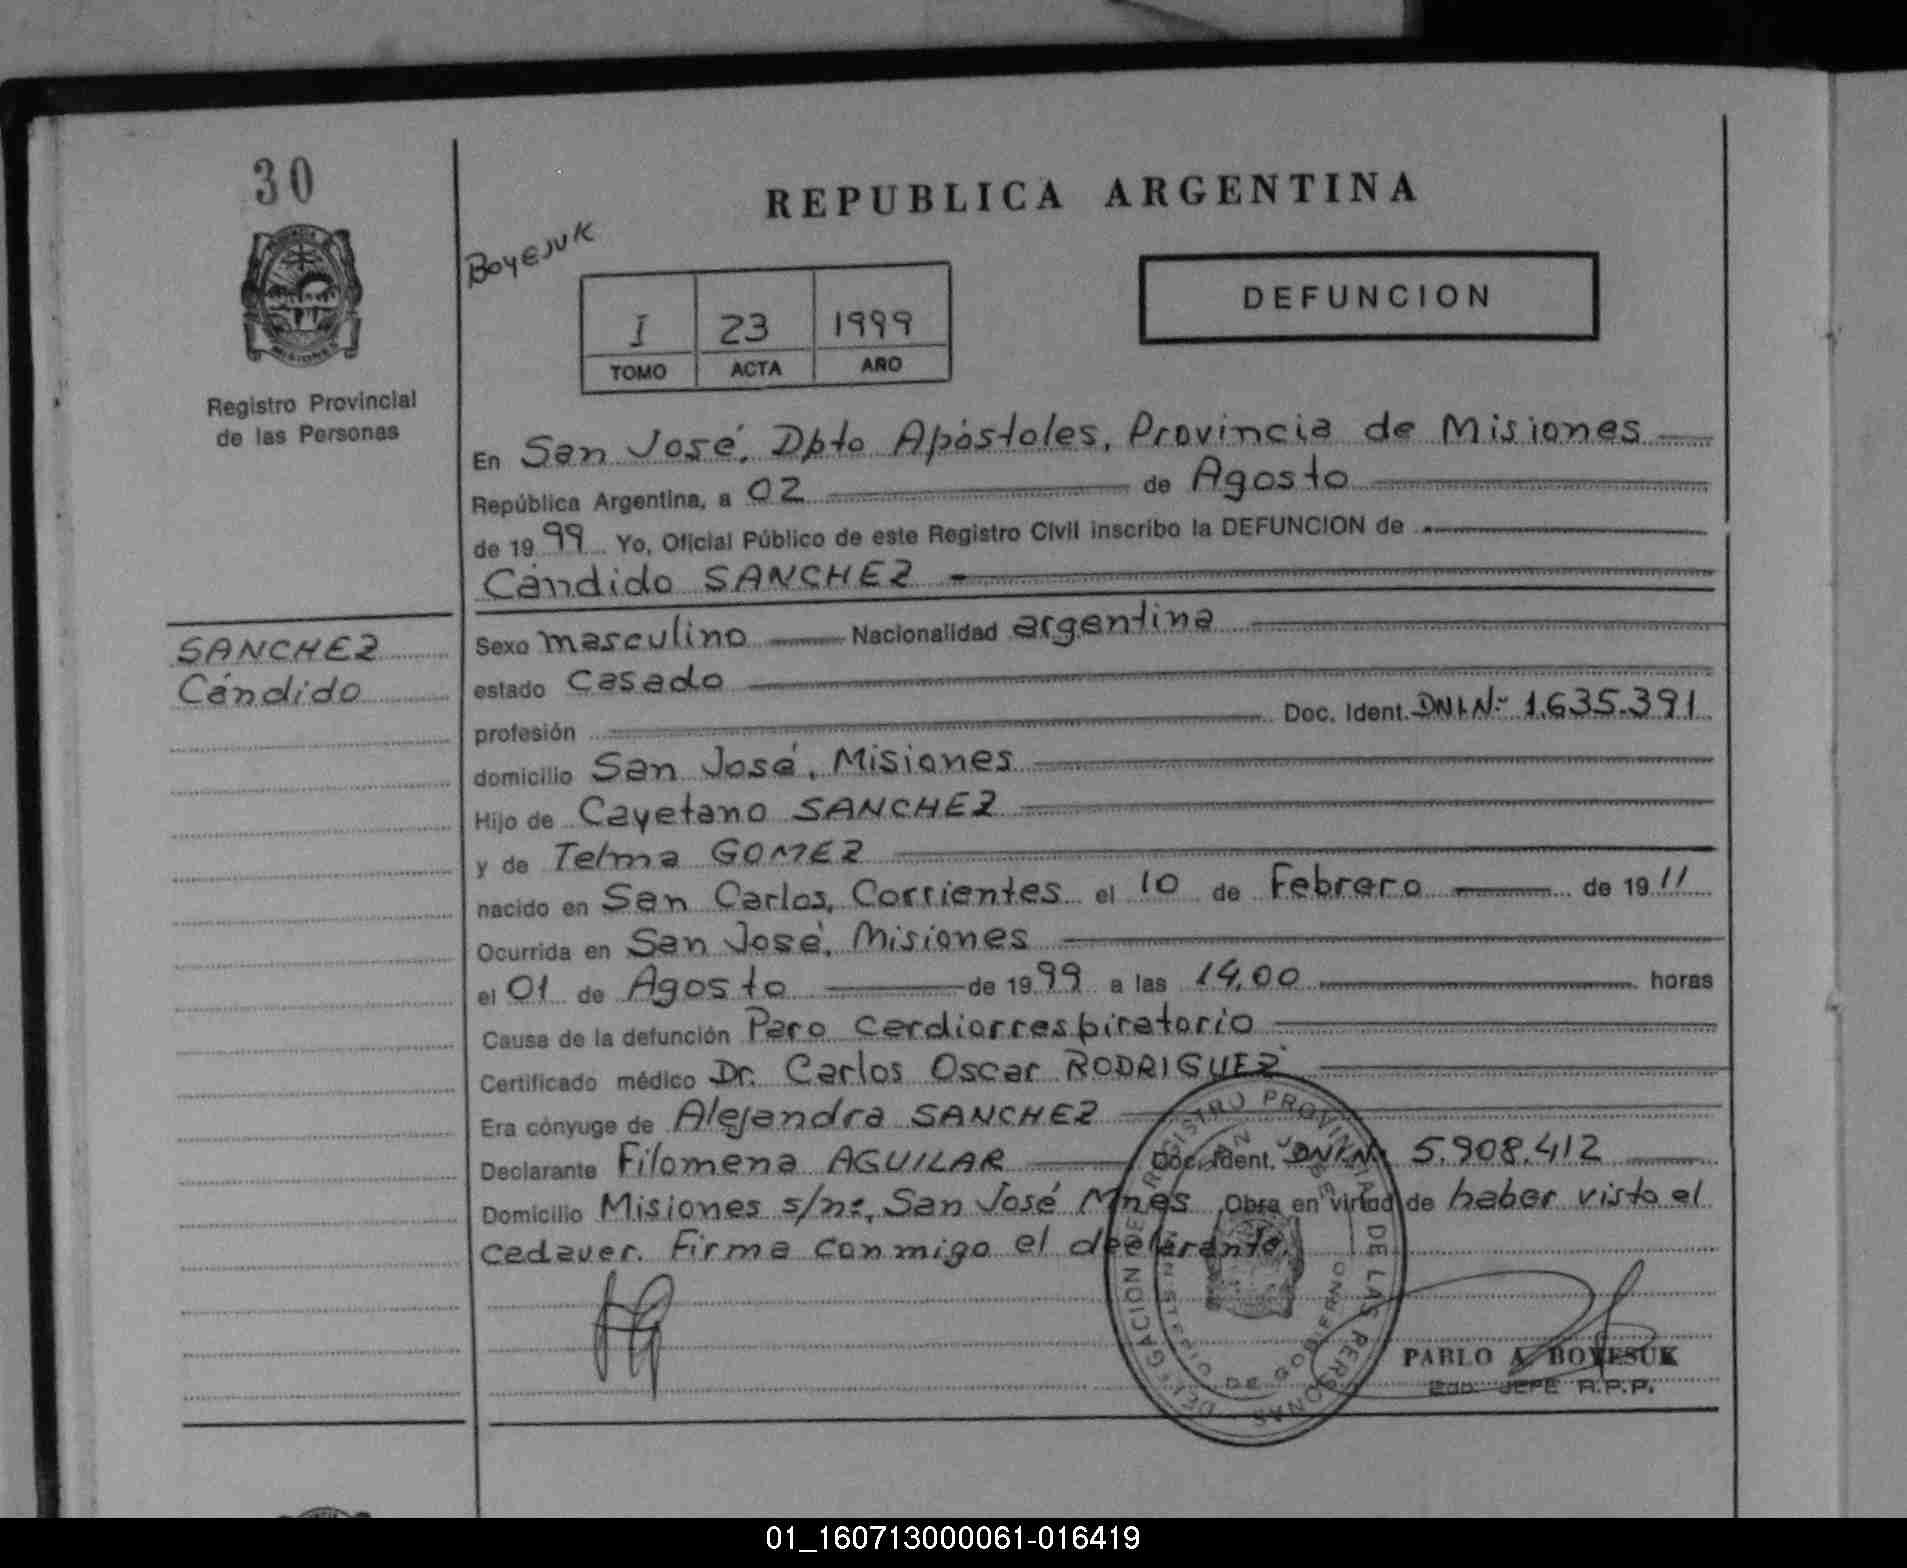 30
MISIONES
Registro Provincial
de las Personas
SANCHEZ
Cándido
REPUBLICA ARGENTINA
Boyejuk
I 23 1999
TOMO ACTA AÑO
DEFUNCION
En San José, Dpto Apóstoles, Provincia de Misiones
República Argentina, a 02 de Agosto
de 1999 Yo, Oficial Público de este Registro Civil inscribo la DEFUNCION de
Cándido SANCHEZ
Sexo masculino Nacionalidad argentina
estado casado
profesión Doc. Ident. DNI.Nº 1.635.391
domicilio San José, Misiones
Hijo de Cayetano SANCHEZ
y de Telma GOMEZ
nacido en San Carlos, Corrientes el 10 de Febrero de 1911
Ocurrida en San José, Misiones
el 01 de Agosto de 1999 a las 14,00 horas
Causa de la defunción Paro cardiorrespiratorio
Certificado médico Dr. Carlos Oscar RODRIGUEZ
Era cónyuge de Alejandra SANCHEZ
Declarante Filomena AGUILAR Doc. Ident. DNI.Nº 5.908.412
Domicilio Misiones s/nº, San José Mnes Obra en virtud de haber visto el
cadaver. Firma conmigo el declarante.
DELEGACION DEL REGISTRO PROVINCIAL DE LAS PERSONAS
DE GOBIERNO
PABLO A. BOYESUK
2do. JEFE R.P.P.
01_160713000061-016419